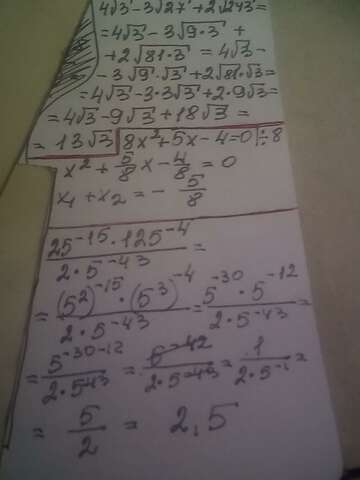 4√3 - 3√27 + 2√243 =
= 4√3 - 3√9·3 +
+ 2√81·3 = 4√3 -
- 3√9·√3 + 2√81·√3 =
= 4√3 - 3·3√3 + 2·9√3 =
= 4√3 - 9√3 + 18√3 =
= 13√3 | 8x² + 5x - 4 = 0 | ÷8
x² + 5/8 x - 4/8 = 0
x₁ + x₂ = - 5/8
25⁻¹⁵ · 125⁻⁴ / 2·5⁻⁴³ =
= (5²)⁻¹⁵ · (5³)⁻⁴ / 2·5⁻⁴³ = 5⁻³⁰ · 5⁻¹² / 2·5⁻⁴³ =
= 5⁻³⁰⁻¹² / 2·5⁻⁴³ = 5⁻⁴² / 2·5⁻⁴³ = 1 / 2·5⁻¹ =
= 5/2 = 2,5